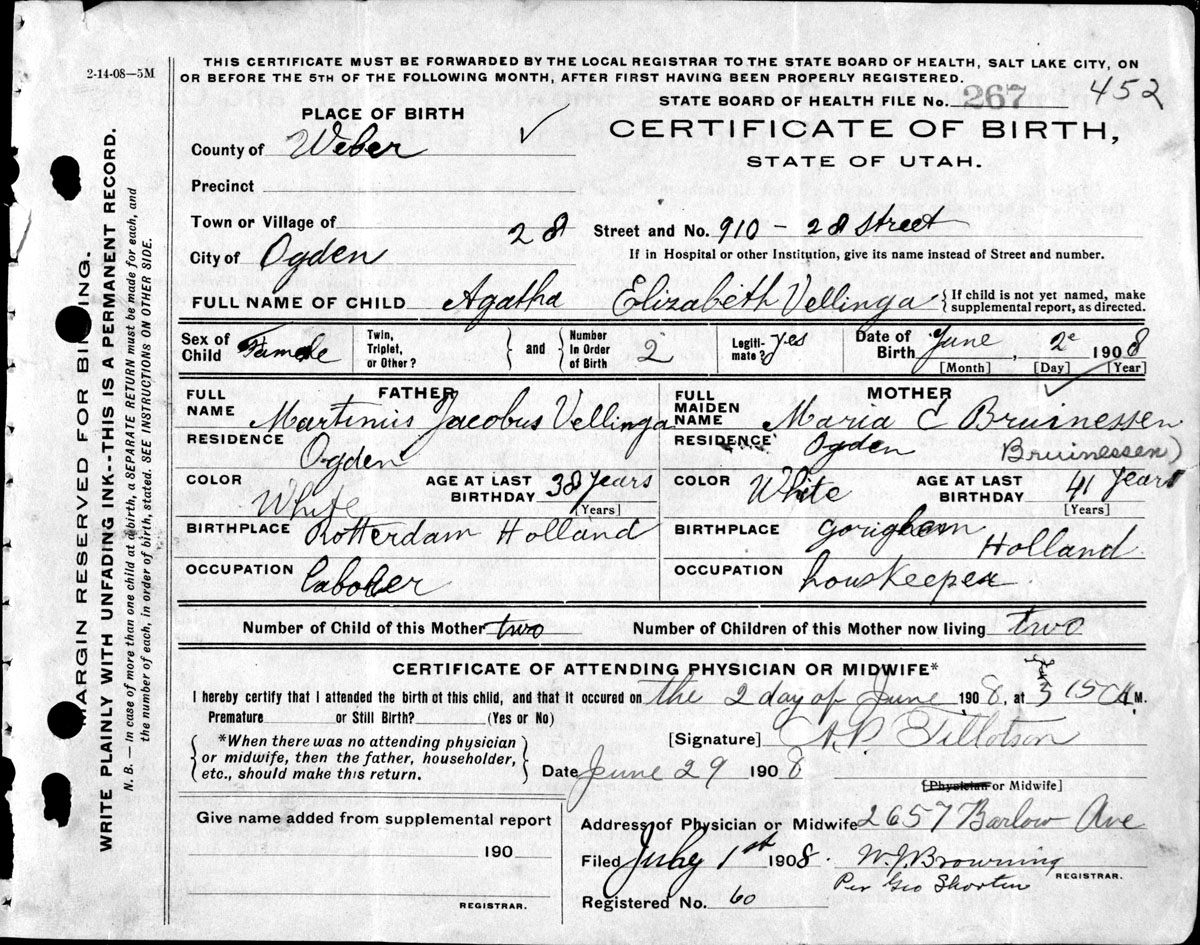 2-14-08—5M
THIS CERTIFICATE MUST BE FORWARDED BY THE LOCAL REGISTRAR TO THE STATE BOARD OF HEALTH, SALT LAKE CITY, ON
OR BEFORE THE 5TH OF THE FOLLOWING MONTH, AFTER FIRST HAVING BEEN PROPERLY REGISTERED.
STATE BOARD OF HEALTH FILE No. 267 452
PLACE OF BIRTH
CERTIFICATE OF BIRTH,
STATE OF UTAH.
County of Weber
Precinct
Town or Village of 28 Street and No. 910 - 28 Street
City of Ogden If in Hospital or other Institution, give its name instead of Street and number.
FULL NAME OF CHILD Agatha Elizabeth Vellinga { If child is not yet named, make
supplemental report, as directed.
Sex of Child Famele Twin, Triplet, or Other? } and { Number In Order of Birth 2 Legiti-mate? yes Date of Birth June, 2e 1908
[Month] [Day] [Year]
FATHER
FULL NAME Martinus Jacobus Vellinga
RESIDENCE Ogden
COLOR White AGE AT LAST BIRTHDAY 38 years
[Years]
BIRTHPLACE Rotterdam Holland
OCCUPATION Laborer
MOTHER
FULL MAIDEN NAME Maria E Bruinessen
RESIDENCE Ogden Bruinessen)
COLOR White AGE AT LAST BIRTHDAY 41 years
[Years]
BIRTHPLACE Holland
OCCUPATION houskeeper
Number of Child of this Mother two Number of Children of this Mother now living two
CERTIFICATE OF ATTENDING PHYSICIAN OR MIDWIFE*
I hereby certify that I attended the birth of this child, and that it occured on the 2 day of June 1908, at 3 15 A M.
Premature or Still Birth? (Yes or No)
{ *When there was no attending physician
or midwife, then the father, householder,
etc., should make this return. }
[Signature] Tillotson
Date June 29 1908
[Physician or Midwife]
Give name added from supplemental report
190
REGISTRAR.
Address of Physician or Midwife 2657 Barlow Ave
Filed July 1st 1908. W. J. Browning
REGISTRAR.
Per Geo Shorten
Registered No. 60
MARGIN RESERVED FOR BINDING.
WRITE PLAINLY WITH UNFADING INK---THIS IS A PERMANENT RECORD.
N. B. — In case of more than one child at birth, a SEPARATE RETURN must be made for each, and
the number of each, in order of birth, stated. SEE INSTRUCTIONS ON OTHER SIDE.